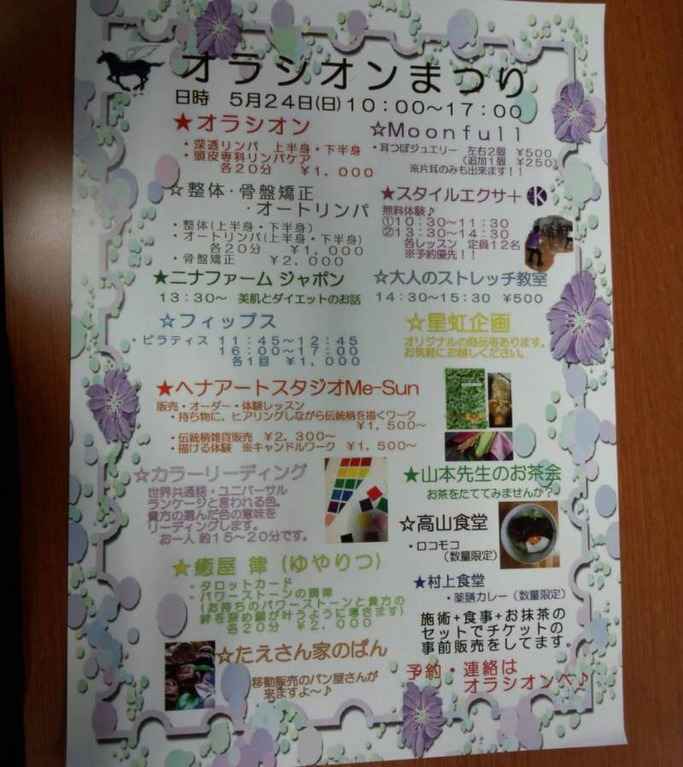 オラシオンまつり
日時 5月24日(日)10:00~17:00
★オラシオン
・深透リンパ 上半身・下半身
・頭皮専科リンパケア
各20分 ¥1,000
☆Moonfull
・耳つぼジュエリー 左右2個 ¥500
(追加1個 ¥250)
※片耳のみも出来ます!!
☆整体・骨盤矯正
・オートリンパ
・整体(上半身・下半身)
・オートリンパ(上半身・下半身)
各20分 ¥1,000
・骨盤矯正 ¥2,000
★スタイルエクサ+
K
無料体験♪
①10:30~11:30
②13:30~14:30
各レッスン 定員12名
※予約優先!!
★ニナファーム ジャポン
13:30~ 美肌とダイエットのお話
☆大人のストレッチ教室
14:30~15:30 ¥500
☆フィップス
・ピラティス 11:45~12:45
16:00~17:00
各1回 ¥1,000
☆星虹企画
オリジナルの商品等あります。
お気軽にお越しください。
★ヘナアートスタジオMe-Sun
販売・オーダー・体験レッスン
・持ち物に、ヒアリングしながら伝統柄を描くワーク
¥1,500~
・伝統柄雑貨販売 ¥2,300~
・描ける体験 ※キャンドルワーク ¥1,500~
☆カラーリーディング
世界共通語・ユニバーサル
ランケージと言われる色。
貴方の選んだ色の意味を
リーディングします。
お一人 約15~20分です。
★山本先生のお茶会
お茶をたててみませんか?
☆高山食堂
・ロコモコ
(数量限定)
★癒屋 律 (ゆやりつ)
・タロットカード
・パワーストーンの調律
(お持ちのパワーストーンと貴方の
絆を深め願が叶うように導きます)
各20分 ¥2,000
★村上食堂
・薬膳カレー(数量限定)
施術+食事+お抹茶の
セットでチケットの
事前販売をしてます
☆たえさん家のぱん
移動販売のパン屋さんが
来ますよ~♪
予約・連絡は
オラシオンへ♪